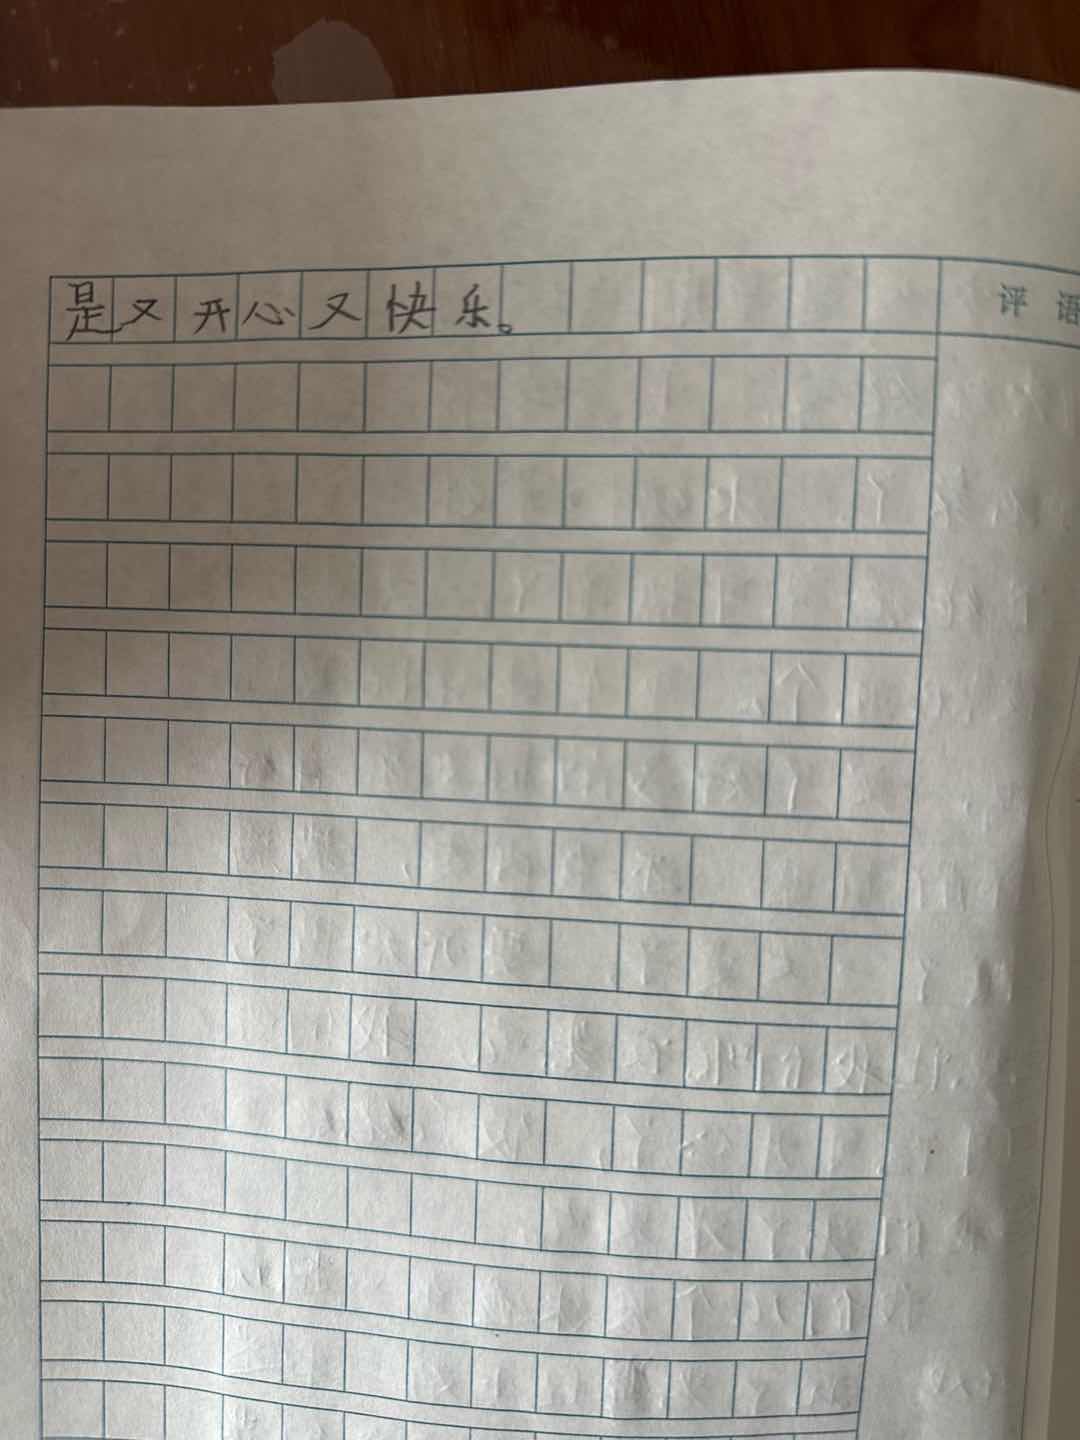 是又开心又快乐。
评语